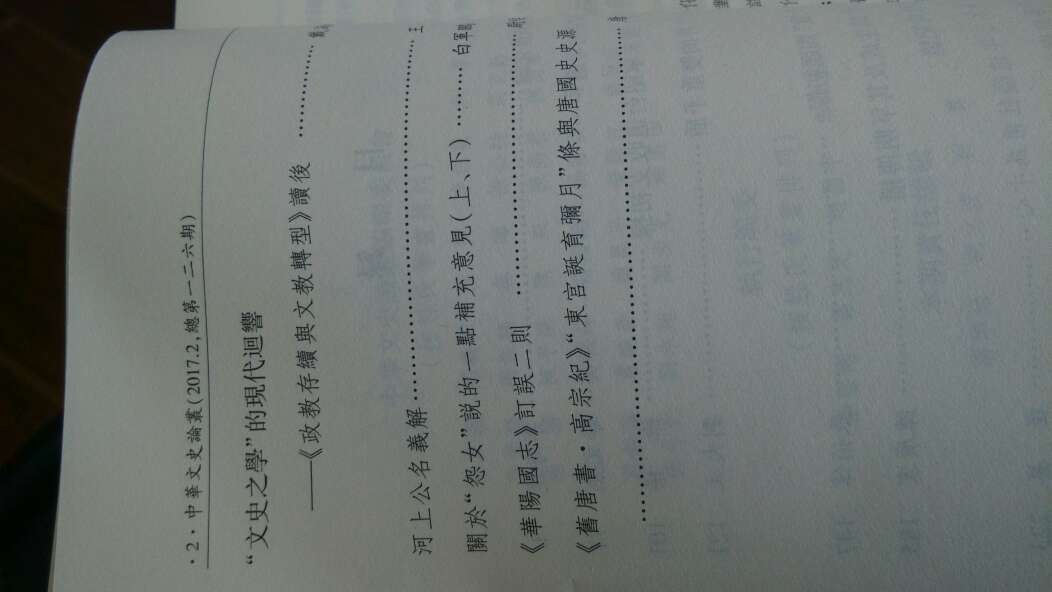 ·2·中華文史論叢(2017.2,總第一二六期)
“文史之學”的現代迴響
——《政教存續與文教轉型》讀後
河上公名義解 王
關於“怨女”説的一點補充意見(上、下) 白軍
《華陽國志》訂誤二則
《舊唐書·高宗紀》“東宮誕育彌月”條與唐國史史源